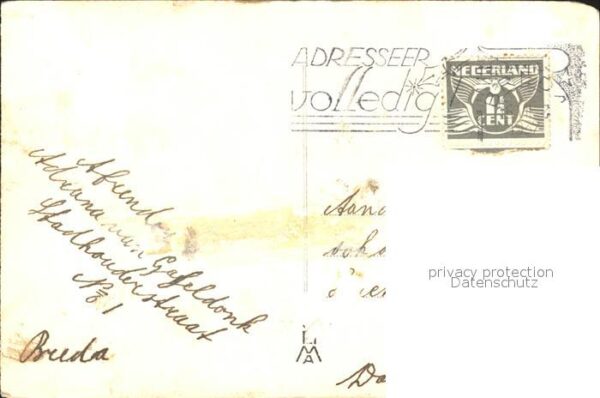 ADRESSEER
volledig
NEDERLAND
1½
CENT
Adriana van Gasteldonk
Stadhouderstraat
No 1
Breda
Aan
privacy protection
Datenschutz
LMA